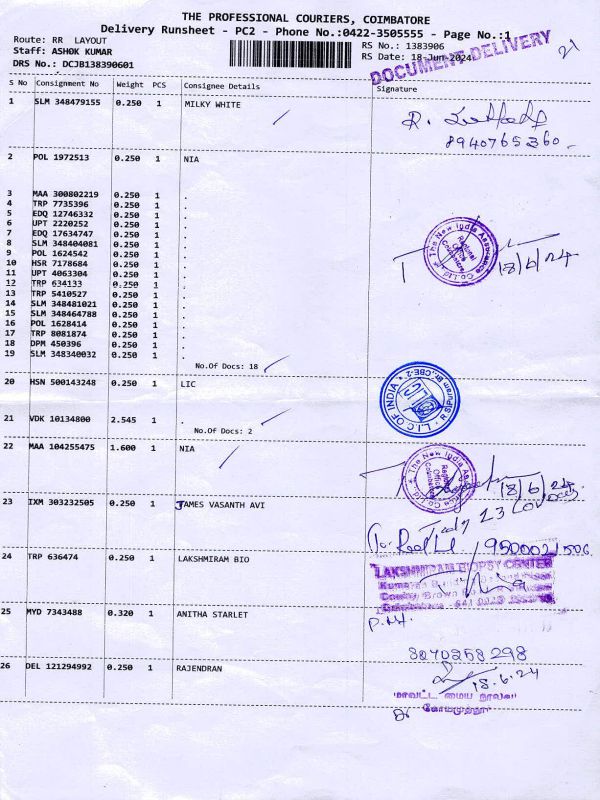 THE PROFESSIONAL COURIERS, COIMBATORE
Delivery Runsheet - PC2 - Phone No.:0422-3505555 - Page No.:1
Route: RR LAYOUT
RS No.: 1383906
Staff: ASHOK KUMAR
RS Date: 18-Jun-2024
DRS No.: DCJB138390601
DOCUMENT DELIVERY
21
S No Consignment No Weight PCS Consignee Details Signature
1 SLM 348479155 0.250 1 MILKY WHITE
R.
8940765360
2 POL 1972513 0.250 1 NIA
3 MAA 300802219 0.250 1 .
4 TRP 7735396 0.250 1 .
5 EDQ 12746332 0.250 1 .
6 UPT 2220252 0.250 1 .
7 EDQ 17634747 0.250 1 .
8 SLM 348404081 0.250 1 .
9 POL 1624542 0.250 1 .
10 HSR 7178684 0.250 1 .
11 UPT 4063304 0.250 1 .
12 TRP 634133 0.250 1 .
13 TRP 5410527 0.250 1 .
14 SLM 348481021 0.250 1 .
15 SLM 348464788 0.250 1 .
16 POL 1628414 0.250 1 .
17 TRP 8081874 0.250 1 .
18 DPM 450396 0.250 1 .
19 SLM 348340032 0.250 1 .
No.Of Docs: 18
The New India Assurance Co. Ltd.
Regional
Office
Coimbatore
18/6/24
20 HSN 500143248 0.250 1 LIC
L.I.C OF INDIA
21 VDK 10134800 2.545 1 .
No.Of Docs: 2
22 MAA 104255475 1.600 1 NIA
The New India Assurance Co. Ltd.
Regional
Office
Coimbatore
18/6/24
23 IXM 303232505 0.250 1 JAMES VASANTH AVI
23
9500021506
24 TRP 636474 0.250 1 LAKSHMIRAM BIO
LAKSHMIRAM BIOPSY CENTER
25 MYD 7343488 0.320 1 ANITHA STARLET
8070258298
26 DEL 121294992 0.250 1 RAJENDRAN
18.6.24
மாவட்ட மைய நூலகம்